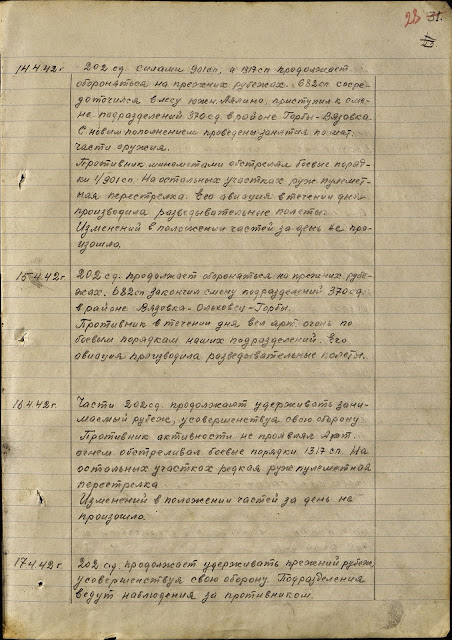 28 31.
14.4.42г. 202 сд. силами 901сп, и 1317сп продолжает
обороняться на прежних рубежах. 682сп сосре-
доточился в лесу южн. Лялино, приступил к сме-
не подразделений 370сд. в районе Горбы-Вязовка.
С новым пополнением проведены занятия по мат.
части оружия.
Противник минометами обстрелял боевые поряд-
ки 1/901сп. На остальных участках руж. пулемет-
ная перестрелка. Его авиация в течении дня
производила разведывательные полеты.
Изменений в положении частей за день не про-
изошло.
15.4.42г. 202 сд. продолжает обороняться на прежних рубе-
жах. 682сп закончил смену подразделений 370сд.
в районе Вязовка-Ольховец-Горбы.
Противник в течении дня вел арт. огонь по
боевым порядкам наших подразделений. Его
авиация производила разведывательные полеты.
16.4.42г. Части 202сд. продолжают удерживать зани-
маемый рубеж, усовершенствуя свою оборону.
Противник активности не проявлял. Арт.
огнем обстреливал боевые порядки 1317 сп. На
остальных участках редкая руж. пулеметная
перестрелка.
Изменений в положении частей за день не
произошло.
17.4.42г. 202 сд. продолжает удерживать прежний рубеж,
усовершенствуя свою оборону. Подразделения
ведут наблюдения за противником.